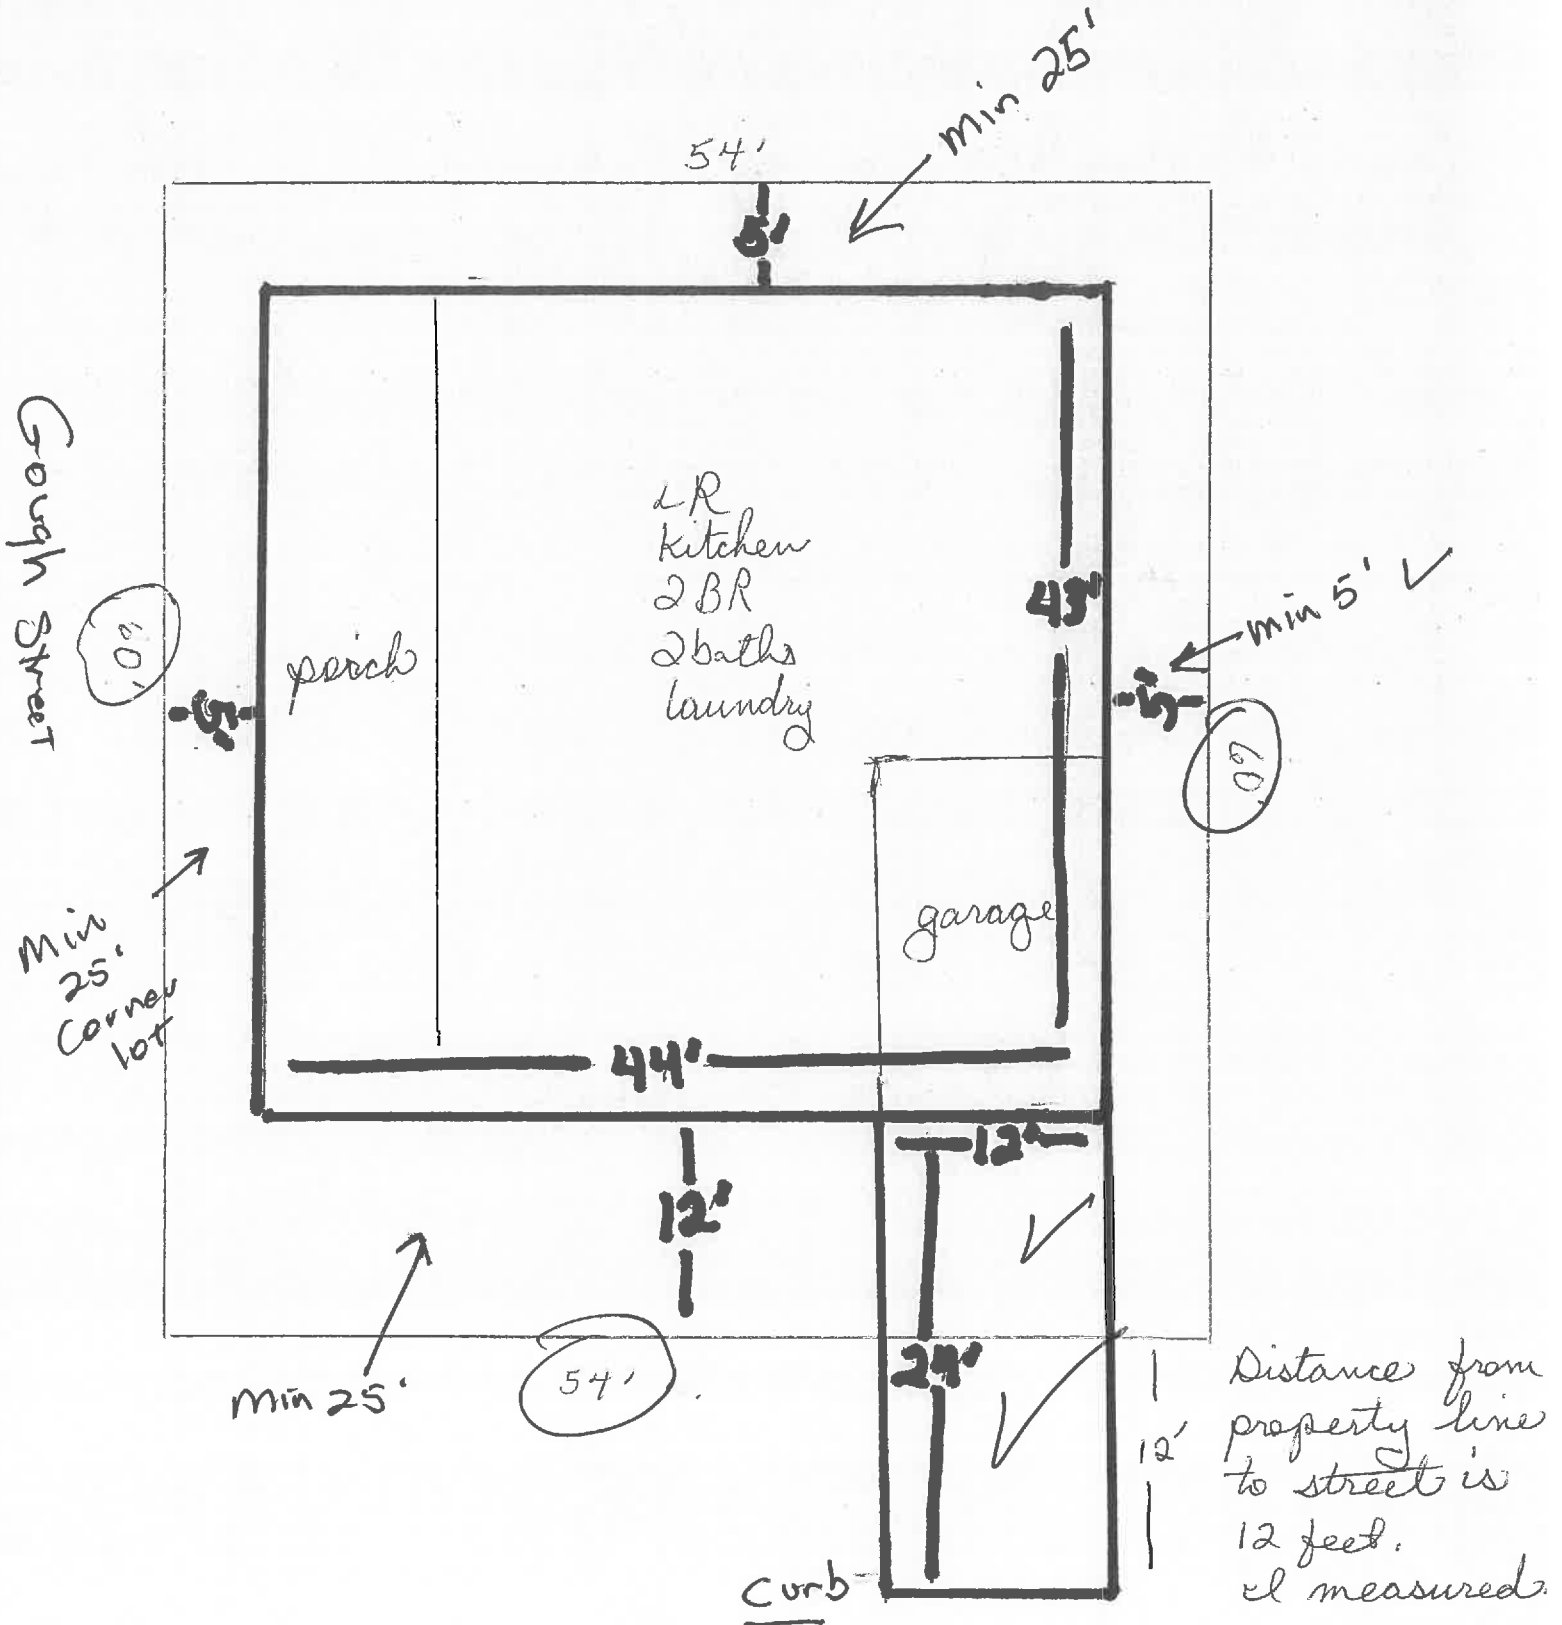 min 25'
54'
5'
Gough Street
LR
Kitchen
2 BR
2 baths
laundry
porch
43'
min 5' ✓
60'
5'
5'
60'
garage
Min
25'
Corner
lot
44'
12'
12'
Min 25'
54'
24'
12'
Distance from
property line
to street is
12 feet.
I measured.
Curb